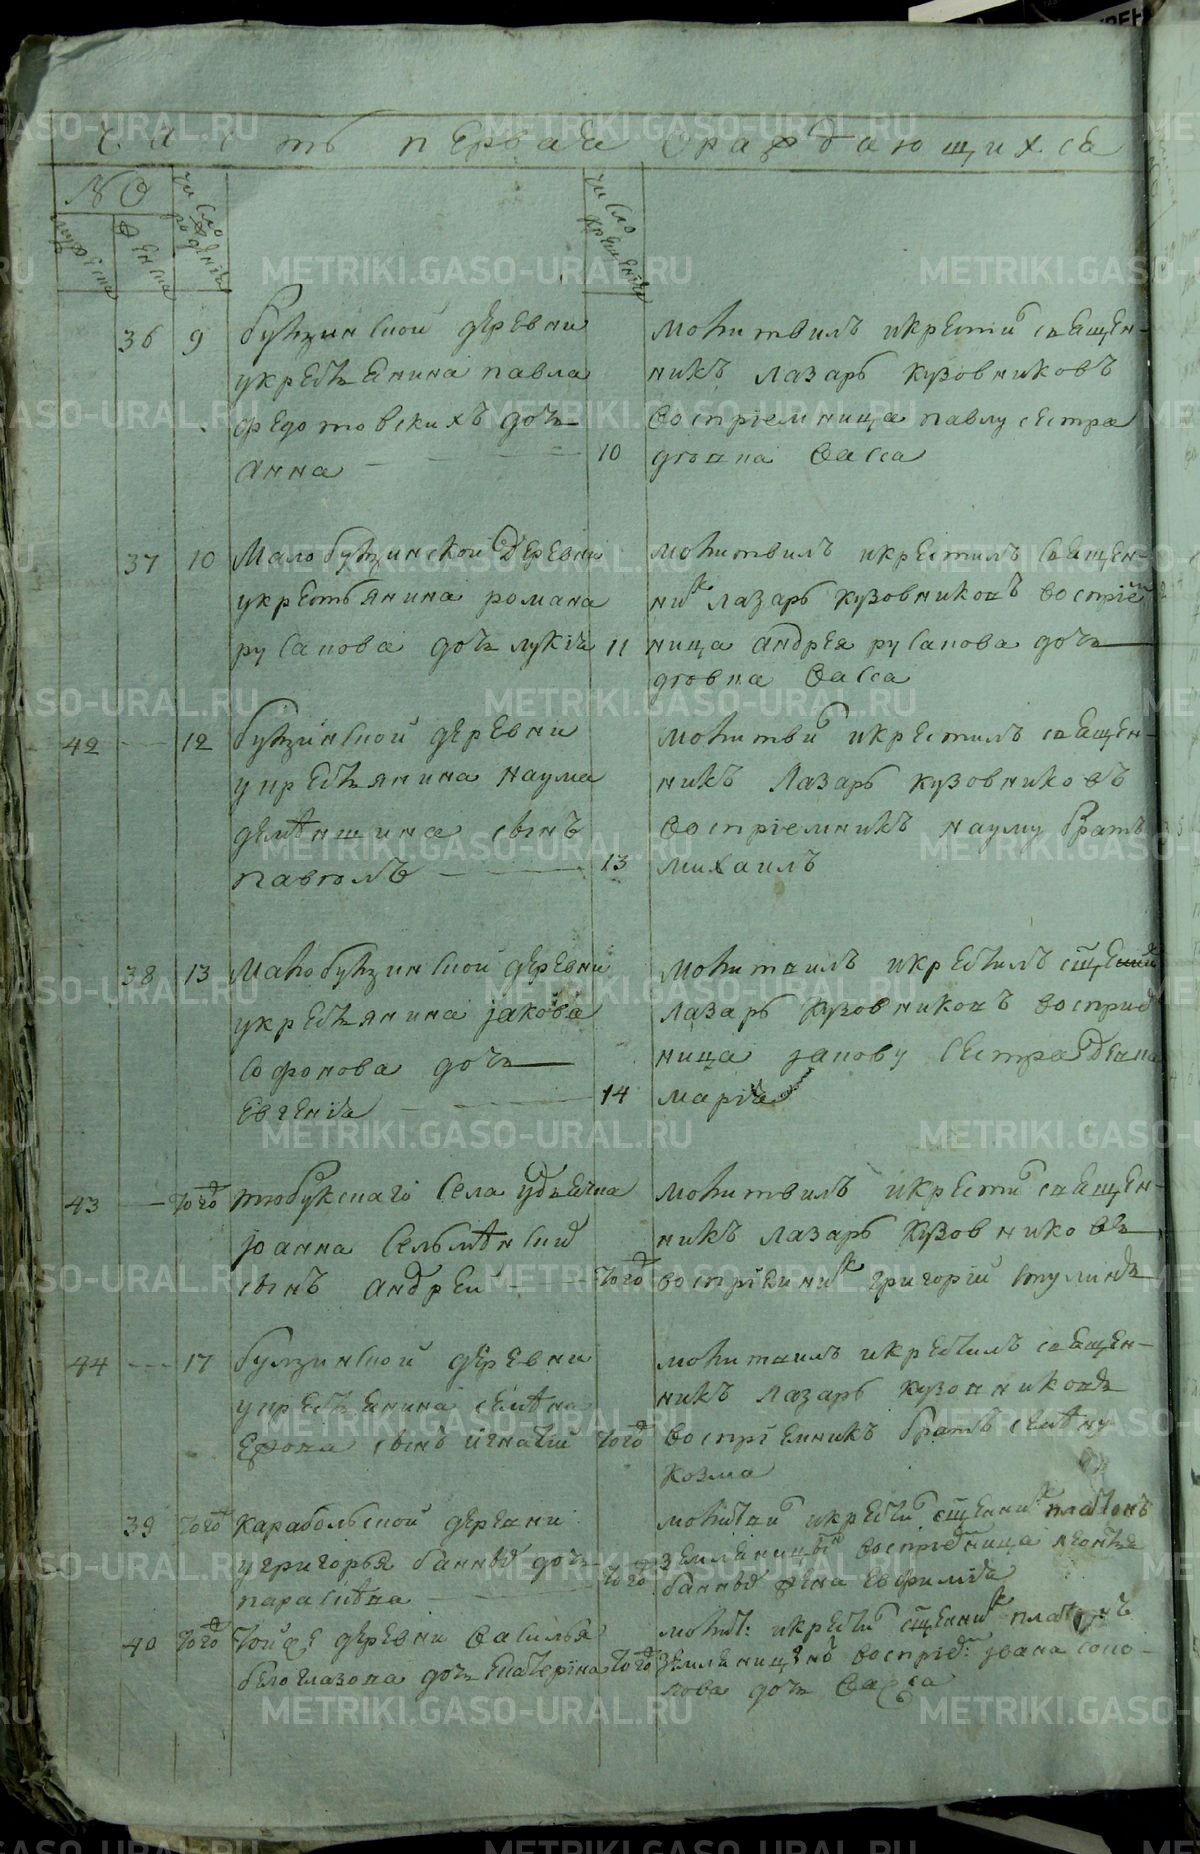 часть первая о раждающихся
№
мужеска
женска
число рожденія
число крещенія
36 9 булзинской деревни
у крестьянина павла
федотовскихъ дочь
Анна 10
молитвилъ и крестил священ-
никъ лазарь кузовниковъ
воспріемница павлу сестра
Васса
37 10 Малобулзинской деревни
у крестьянина романа
русанова дочь лукія 11
молитвилъ и крестилъ священ-
ник лазарь кузовниковъ воспріем
ница андрея русанова дочь
Васса
42 12 булзинской деревни
у крестьянина наума
сынъ
павелъ 13
молитвил и крестилъ священ-
никъ лазарь кузовниковъ
воспріемникъ науму братъ
михаилъ
38 13 Малобулзинской деревни
у крестьянина јакова
софонова дочь
Евгенія 14
молитвилъ и крестилъ
лазарь кузовниковъ восприем
ница јакову сестра девка
марія
43 того тюбукскаго села у дьячка
јоанна
сынъ андрей того
молитвилъ и крестил священ-
никъ лазарь кузовниковъ
воспріемник григорій
44 17 булзинской деревни
у крестьянина семена
сынъ игнатій того
молитвилъ и крестилъ священ-
никъ лазарь кузовниковъ
воспріемникъ братъ семену
козма
39 того карабольской деревни
у григорья банных дочь
параскева того
молитвил и крестил священник платонъ
земляницынъ воспріемница леонтья
банных жена евфимія
40 того той же деревни василья
белоглазова дочь екатерина того
молит: и крестил священник платонъ
воспріем: јоана соко-
лова дочь Васса
METRIKI.GASO-URAL.RU